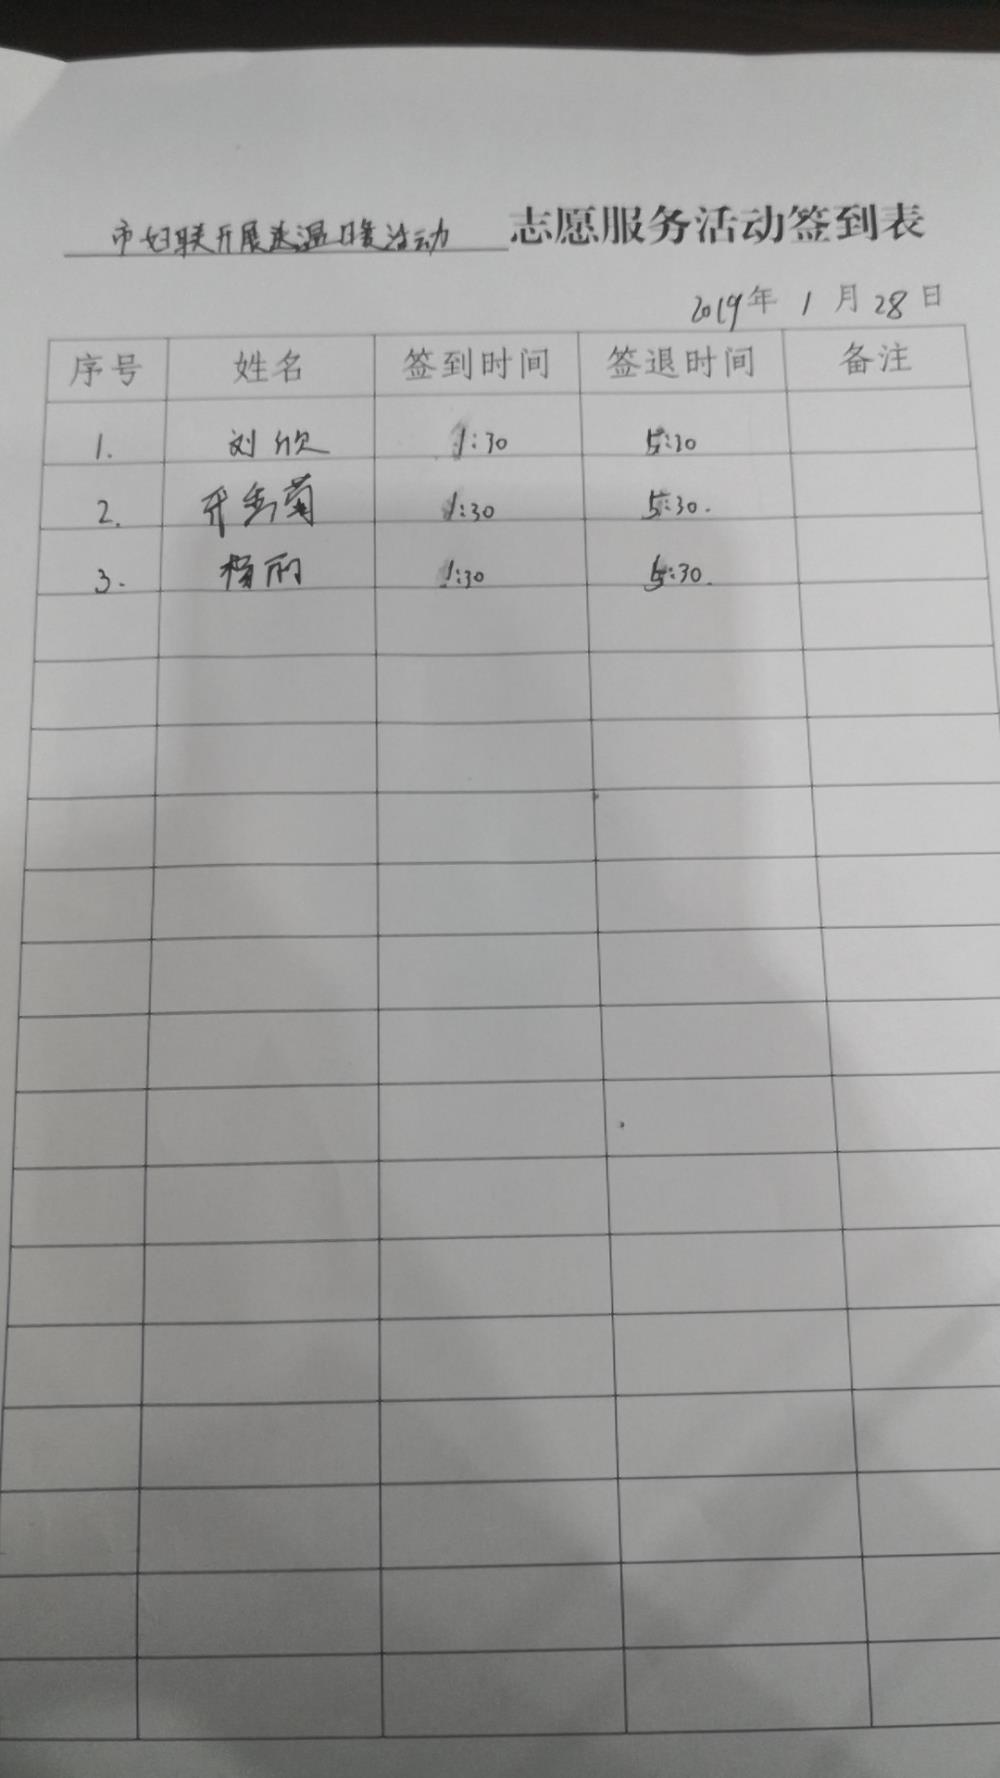 市妇联开展送温暖活动 志愿服务活动签到表
2019年 1月28日
序号 姓名 签到时间 签退时间 备注
1. 刘欣 1:30 5:30
2. 开金菊 1:30 5:30.
3. 杨丽 1:30 5:30.